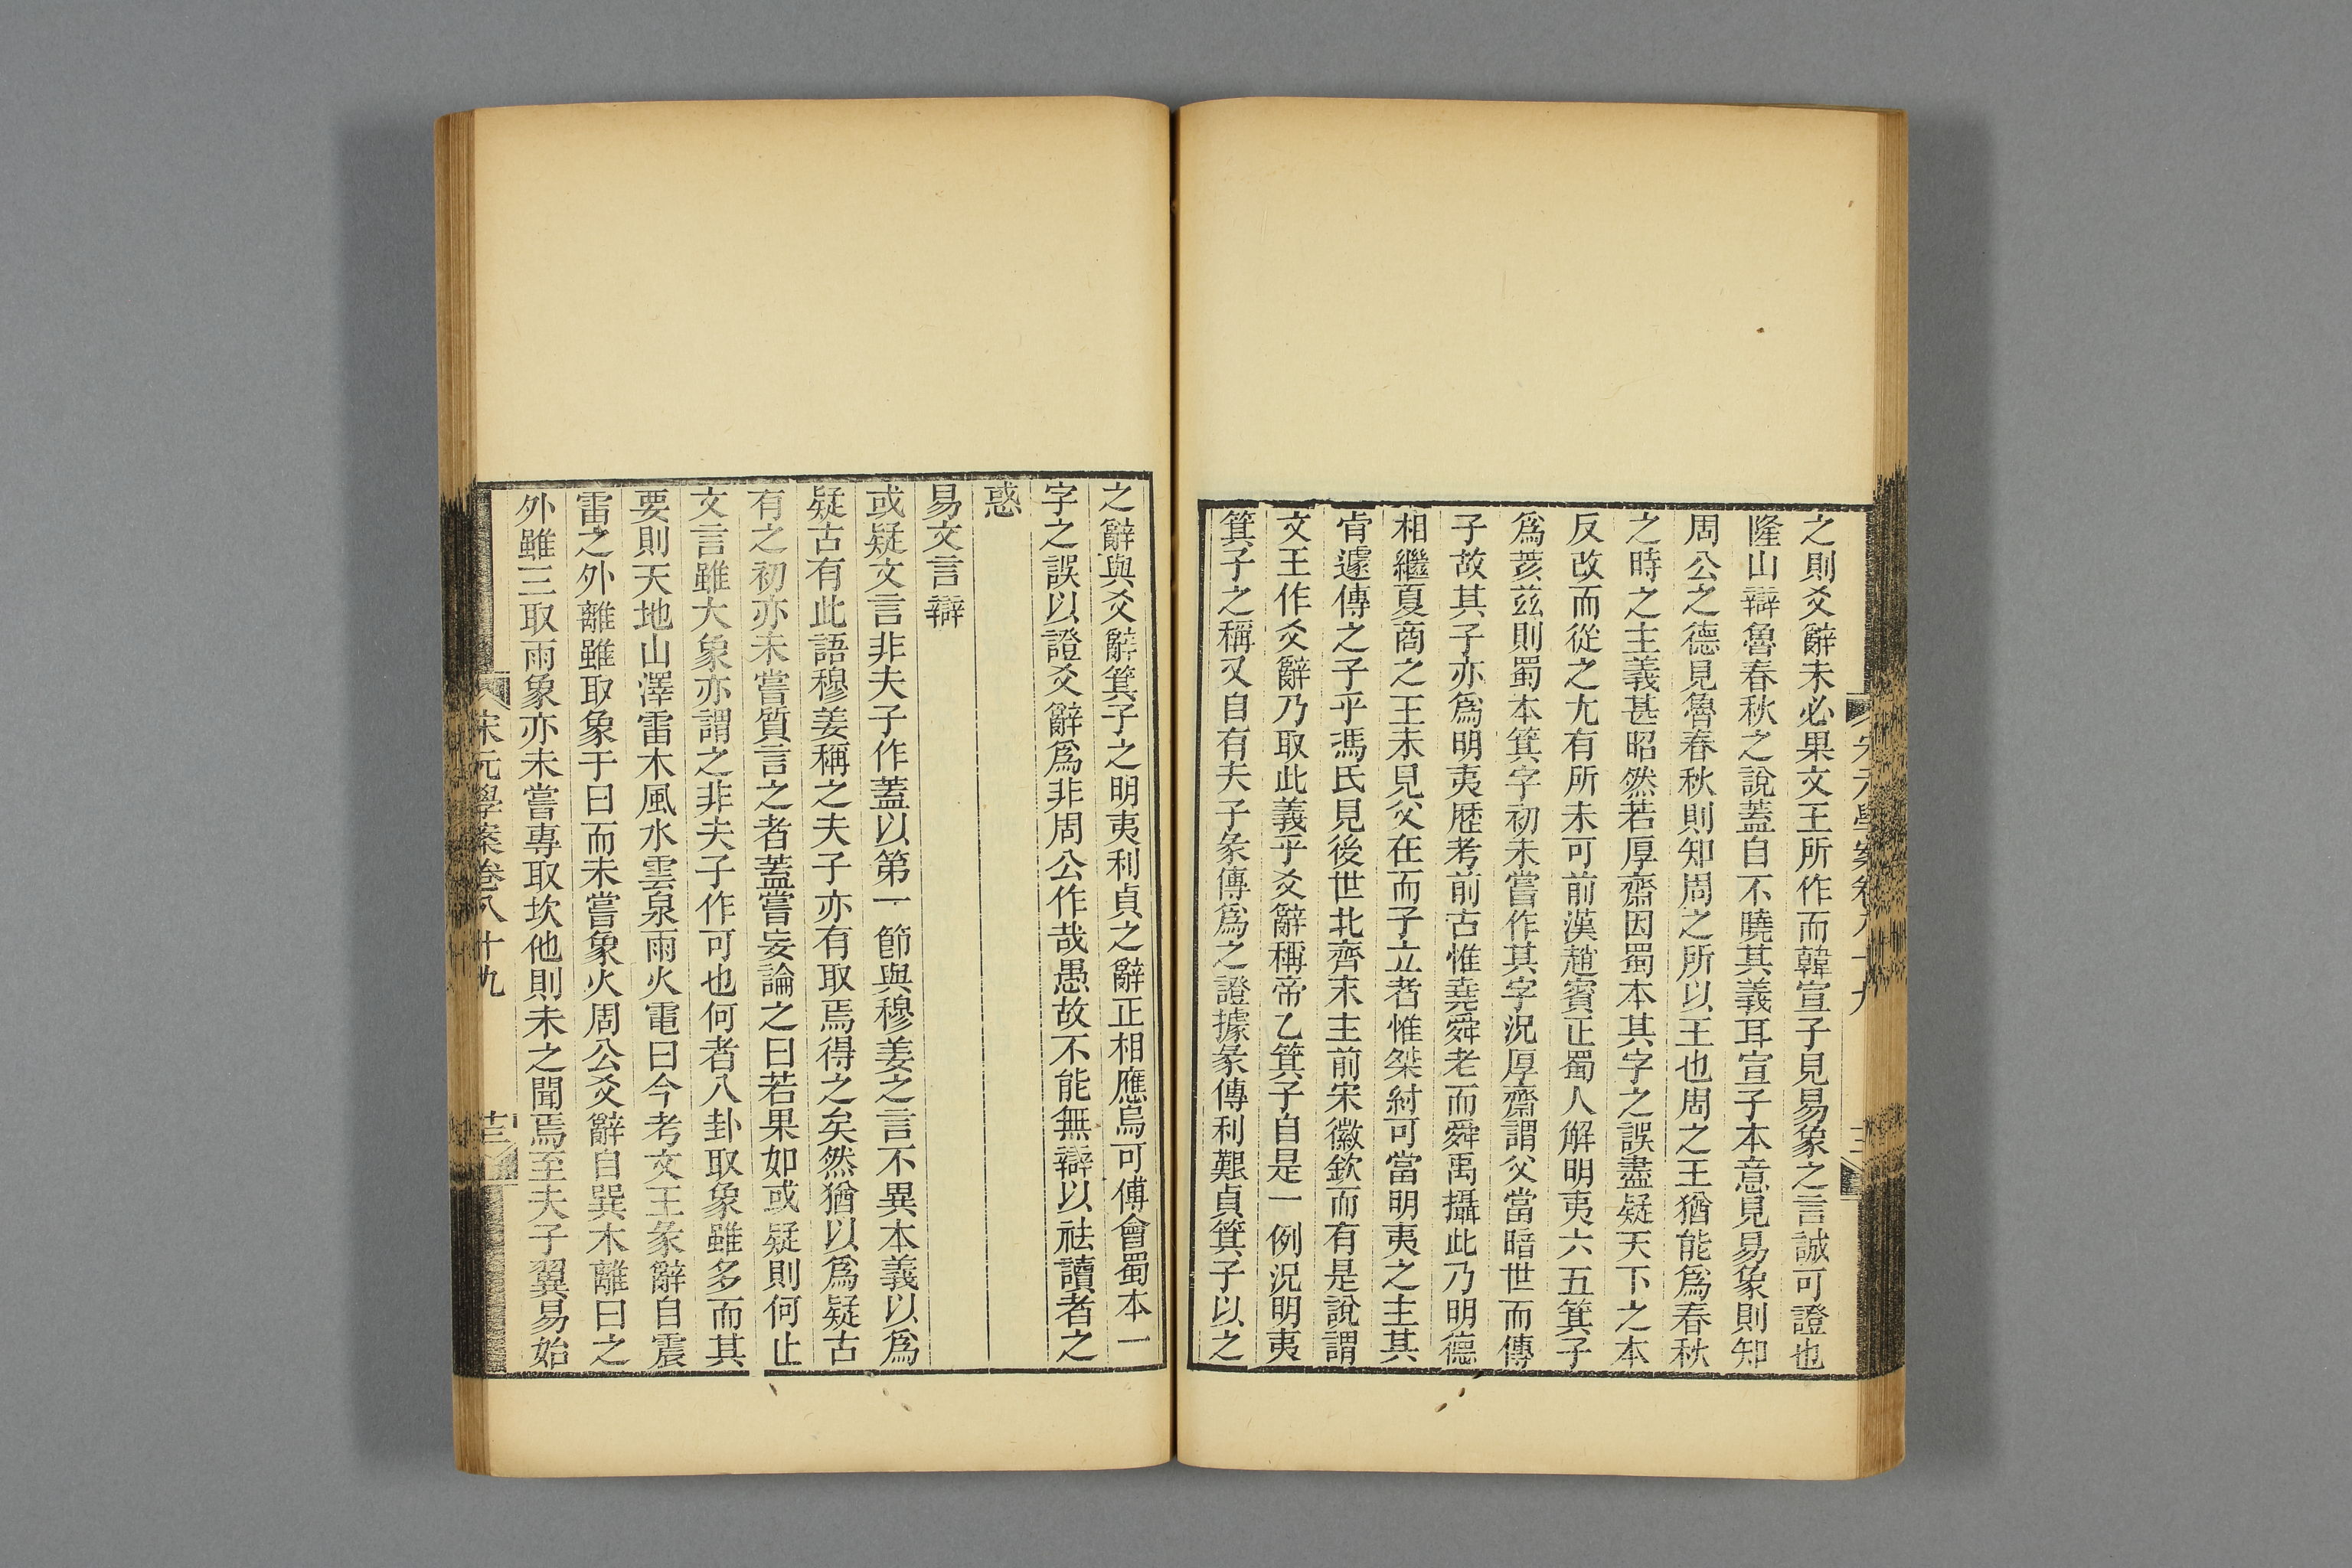 之則爻辭未必果文王所作而韓宣子見易象之言誠可證也
隆山辯魯春秋之說蓋自不曉其義耳宣子本意見易象則知
周公之德見魯春秋則知周之所以王也周之王猶能爲春秋
之時之主義甚昭然若厚齋因蜀本其字之誤盡疑天下之本
反改而從之尢有所未可前漢趙賓正蜀人解明夷六五箕子
爲荄茲則蜀本箕字初未嘗作其字況厚齋謂父當暗世而傳
子故其子亦爲明夷歷考前古惟堯舜老而舜禹攝此乃明德
相繼夏商之王未見父在而子立者惟桀紂可當明夷之主其
肯遽傳之子乎馮氏見後世北齊末主前宋徽欽而有是說謂
文王作爻辭乃取此義乎爻辭稱帝乙箕子自是一例況明夷
箕子之稱又自有夫子彖傳爲之證據彖傳利艱貞箕子以之
之辭與爻辭箕子之明夷利貞之辭正相應烏可傅會蜀本一
字之誤以證爻辭爲非周公作哉愚故不能無辯以祛讀者之
惑
易文言辯
或疑文言非夫子作蓋以第一節與穆姜之言不異本義以爲
疑古有此語穆姜稱之夫子亦有取焉得之矣然猶以爲疑古
有之初亦未嘗質言之者蓋嘗妄論之曰若果如或疑則何止
文言雖大象亦謂之非夫子作可也何者八卦取象雖多而其
要則天地山澤雷木風水雲泉雨火電日今考文王彖辭自震
雷之外離雖取象于日而未嘗象火周公爻辭自巽木離日之
外雖三取雨象亦未嘗專取坎他則未之聞焉至夫子翼易始
宋元學案卷八十九